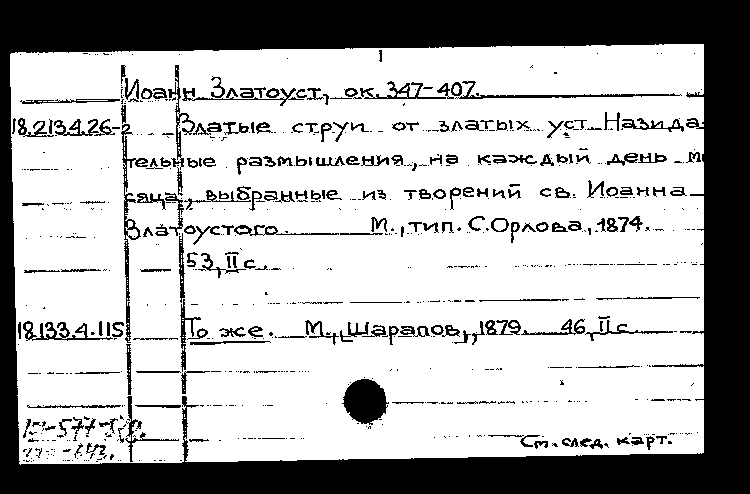 Иоанн Златоуст, ок. 347-407.
18.213.4.26-2 Златые струи от златых уст. Назида-
тельные размышления, на каждый день м
сяца, выбранные из творений св. Иоанна
Златоустого. М., тип. С. Орлова, 1874.
53, II с.
18.133.4.115 То же. М., [Шарапов], 1879. 46, II с
См. след. карт.